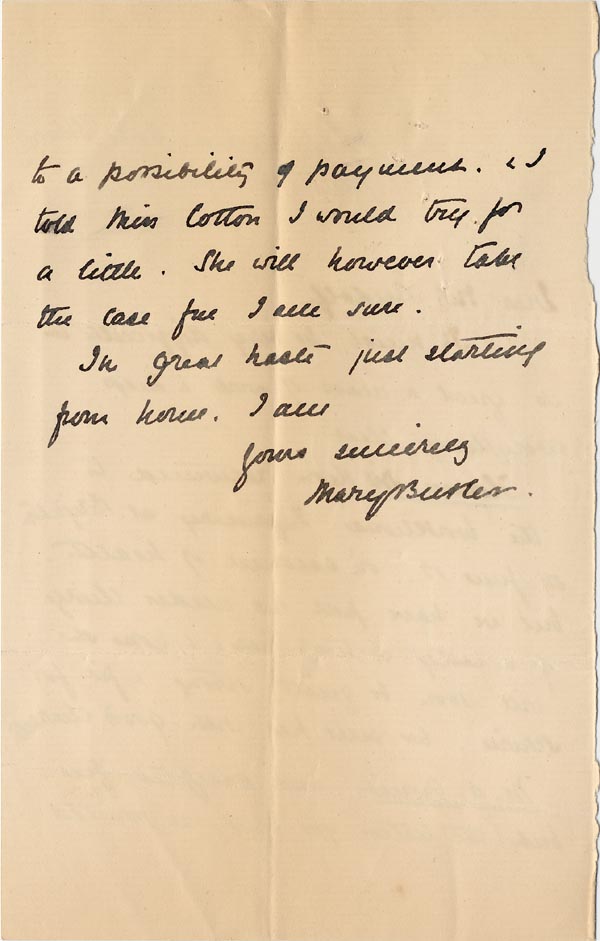 to a possibility of payment. & I
told Miss Cotton I would try for
a little. She will however take
the case free I am sure.
In great haste just starting
from home. I am
Yours sincerely
Mary Butler.